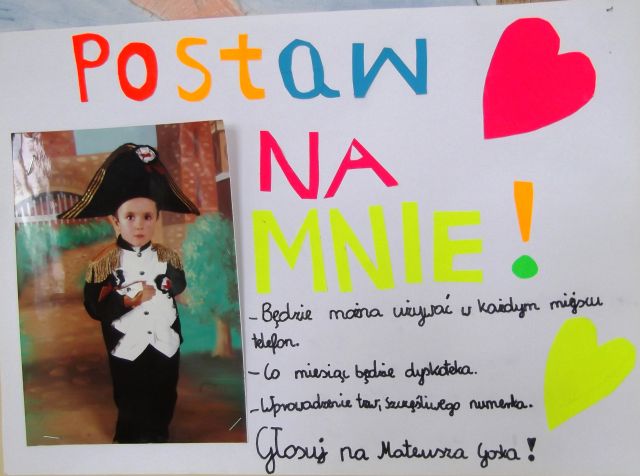 POSTAW
NA
MNIE!
- Będzie można używać w każdym miejscu
telefon.
- Co miesiąc będzie dyskoteka.
- Wprowadzenie tzw. szczęśliwego numerka.
Głosuj na Mateusza Goska!